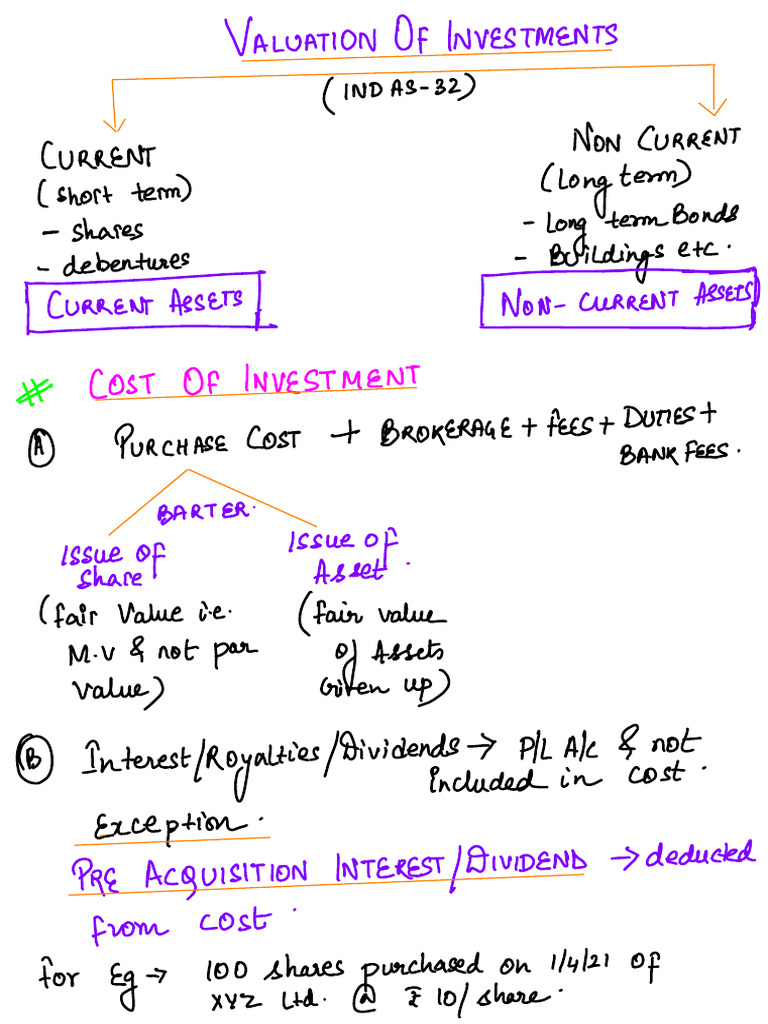 VALUATION OF INVESTMENTS
(IND AS-32)
CURRENT
(short term)
- shares
- debentures
CURRENT ASSETS
NON CURRENT
(Long term)
- Long term Bonds
- Buildings etc.
NON-CURRENT ASSETS
# COST OF INVESTMENT
(A) PURCHASE COST + BROKERAGE + FEES + DUTIES +
BANK FEES.
BARTER.
Issue of
Share
(fair Value i.e.
M.V & not par
value)
Issue of
Asset.
(fair value
of Assets
Given up)
(B) Interest/Royalties/Dividends → P/L A/c & not
included in cost.
Exception.
PRE ACQUISITION INTEREST/DIVIDEND → deducted
from cost.
for Eg → 100 shares purchased on 1/4/21 of
XYZ Ltd. @ ₹ 10/share.